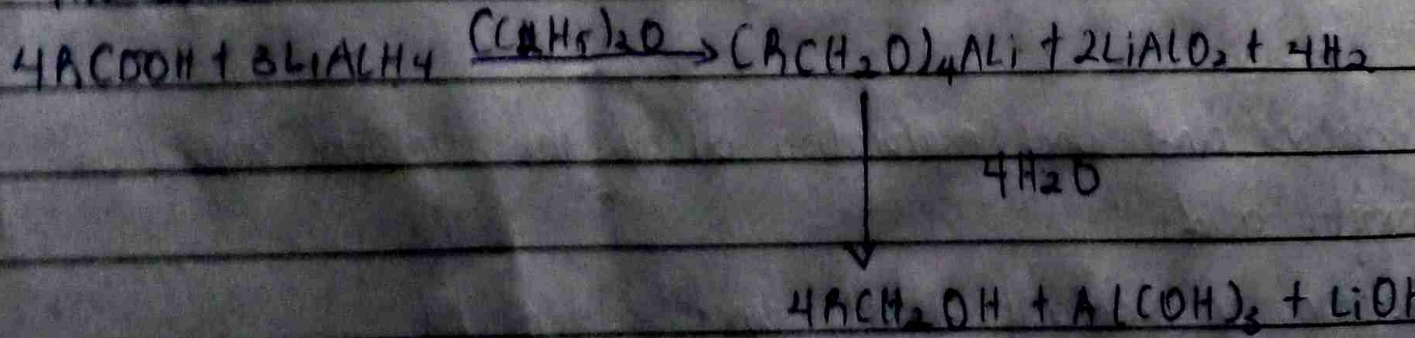 4RCOOH + 3LiAlH4 (C2H5)2O → (RCH2O)4ALi + 2LiAlO2 + 4H2
4H2O
4RCH2OH + Al(OH)3 + LiOH